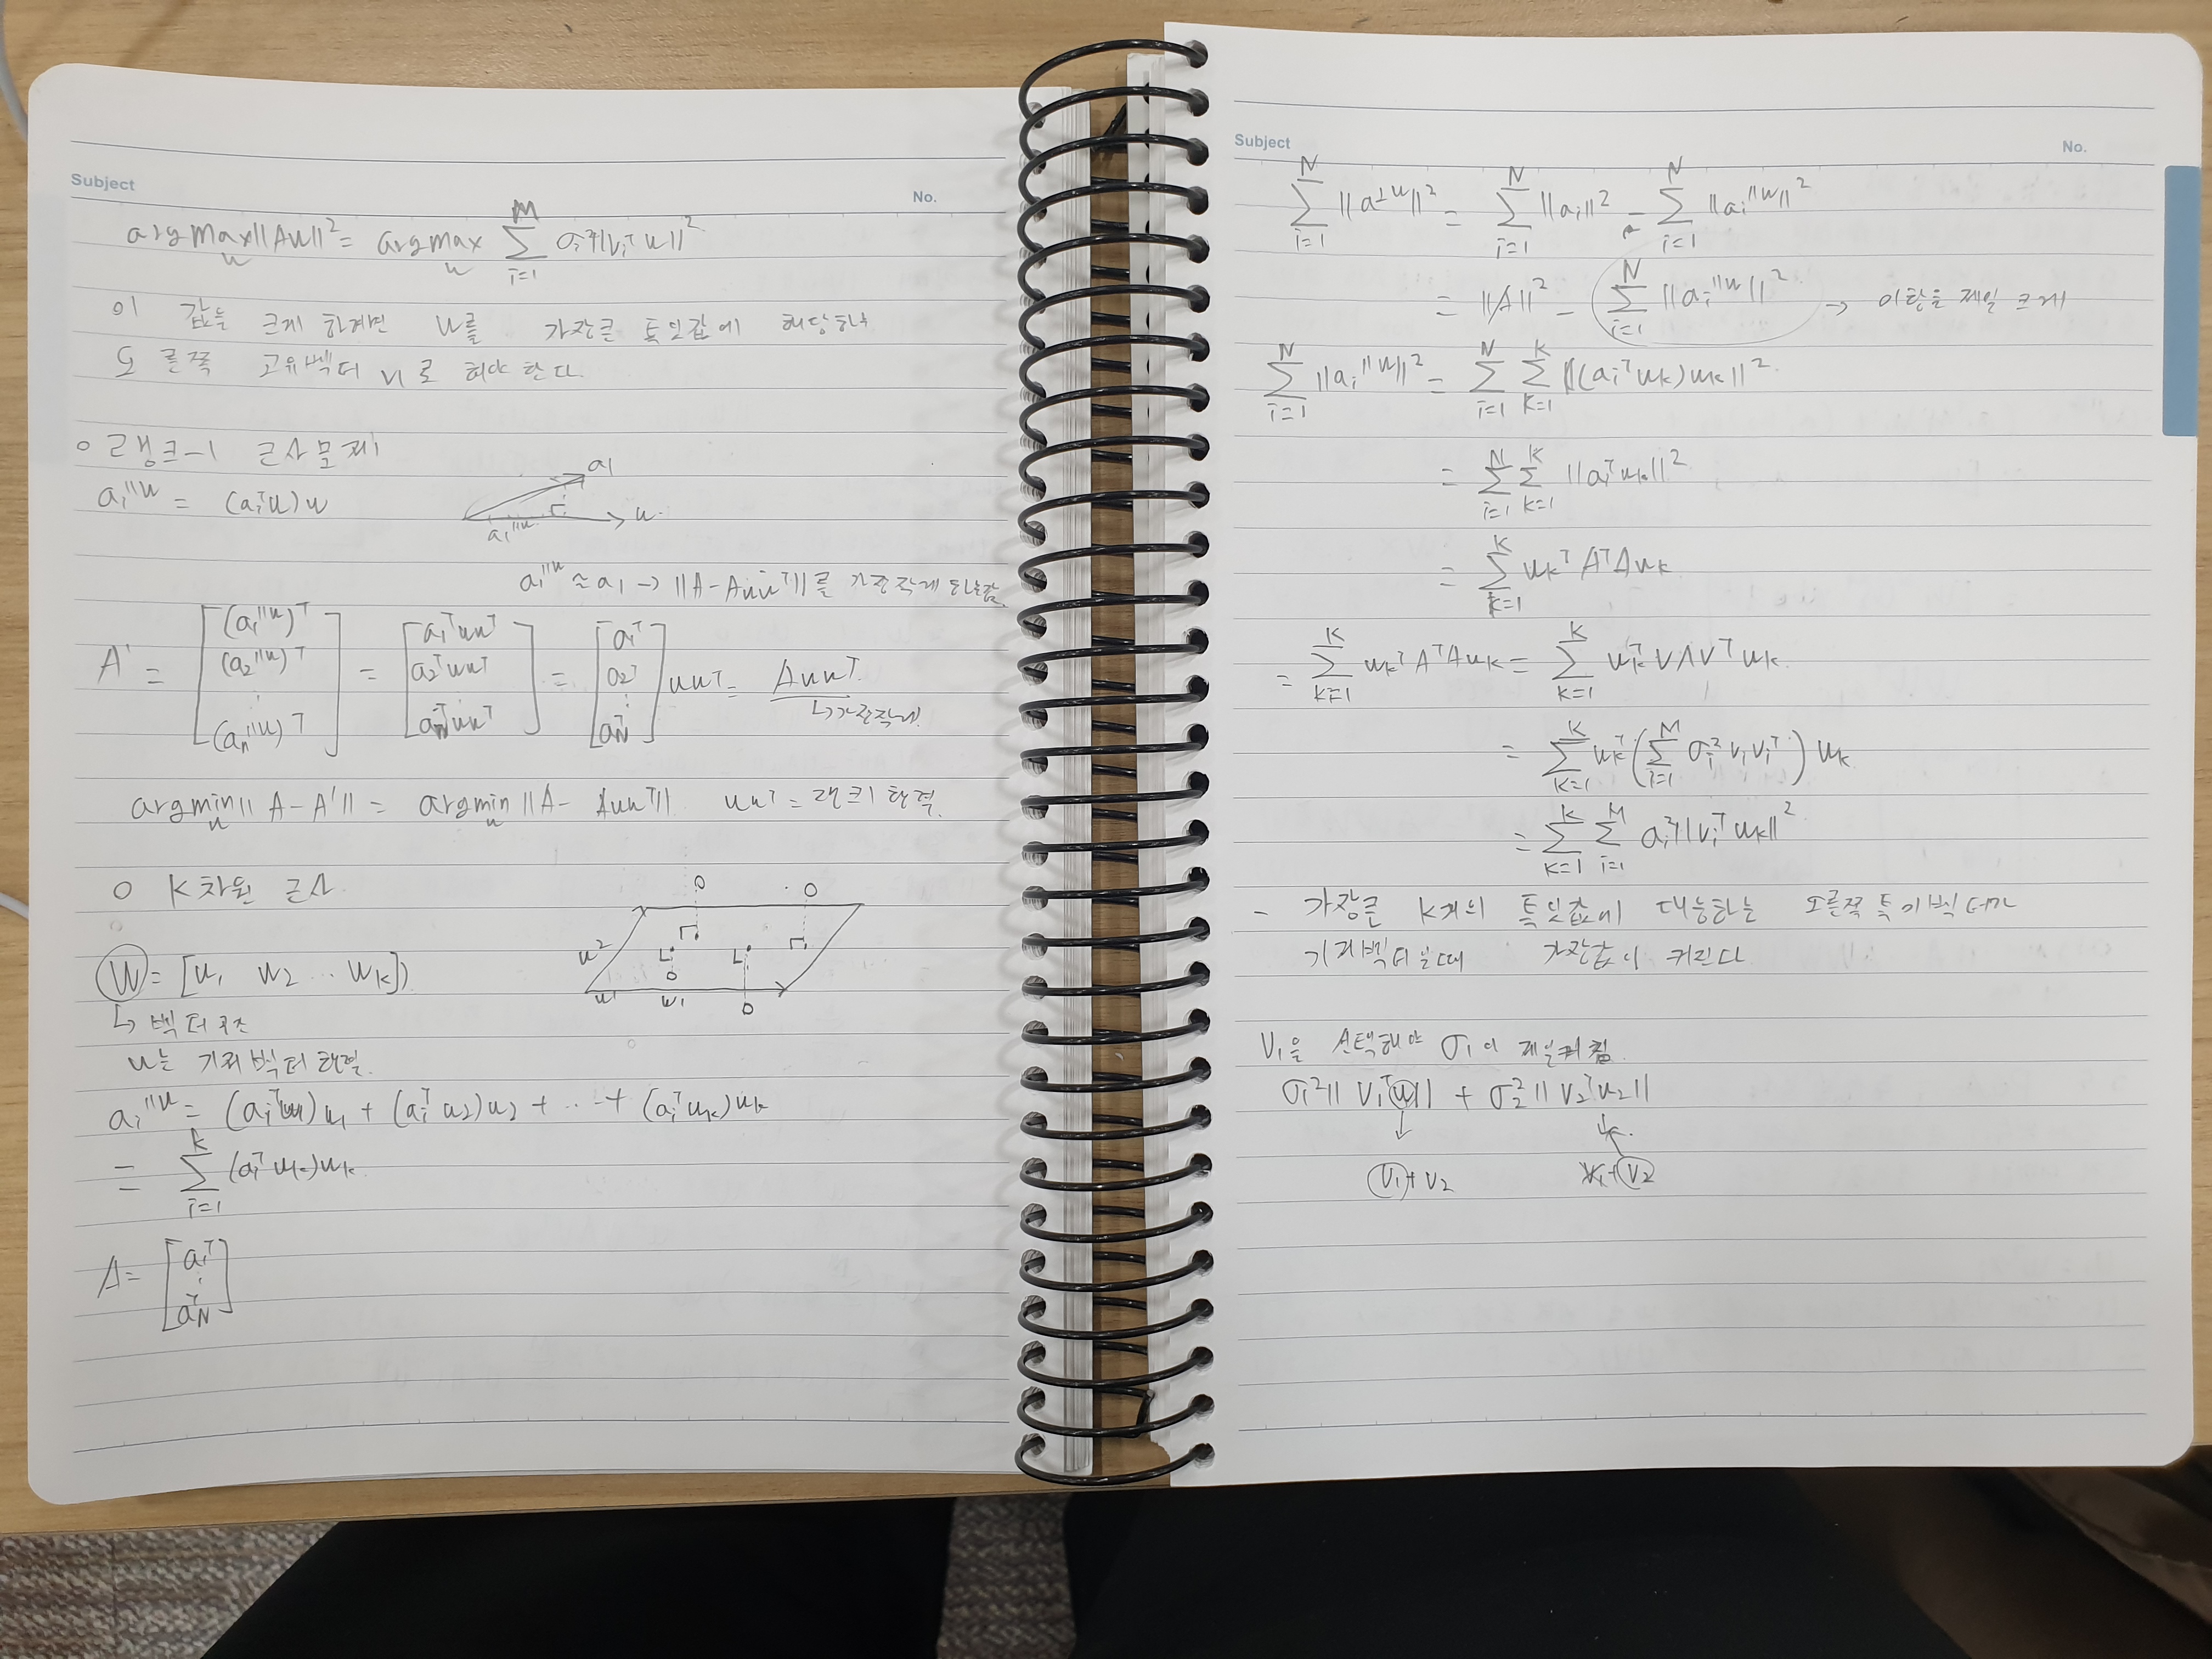 Subject No.
argmax_w ||Aw||² = argmax_w Σ_{i=1}^{M} σᵢ²||vᵢᵀw||²
이 값을 크게 하려면 w를 가장큰 특잇값에 해당하는
오른쪽 고유벡터 v₁로 해야 한다.
○ 랭크-1 근사문제
aᵢ^{∥w} = (aᵢᵀw)w
a₁
w
a₁^{∥w}
a₁^{∥w} ≈ a₁ → ||A-Awwᵀ||를 가장작게
A' = [(a₁^{∥w})ᵀ (a₂^{∥w})ᵀ ⋮ (aₙ^{∥w})ᵀ] = [a₁ᵀwwᵀ a₂ᵀwwᵀ a_Nᵀwwᵀ] = [a₁ᵀ a₂ᵀ ⋮ a_Nᵀ]wwᵀ = Awwᵀ
↳가장작게
argmin_w ||A-A'|| = argmin_w ||A- Awwᵀ|| wwᵀ = 랭크1 행렬.
○ K차원 근사
W = [w₁ w₂ ⋯ w_k]
w₂
w₁ w₁
↳ 벡터공간
w는 기저벡터 행렬.
aᵢ^{∥w} = (aᵢᵀw₁)w₁ + (aᵢᵀw₂)w₂ + ⋯ + (aᵢᵀw_k)w_k
= Σ_{i=1}^{k} (aᵢᵀw_k)w_k
A = [a₁ᵀ ⋮ a_Nᵀ]
Subject No.
Σ_{i=1}^{N} ||a^{⊥w}||² = Σ_{i=1}^{N} ||aᵢ||² - Σ_{i=1}^{N} ||aᵢ^{∥w}||²
= ||A||² - Σ_{i=1}^{N} ||aᵢ^{∥w}||² → 이항을 제일 크게
Σ_{i=1}^{N} ||aᵢ^{∥w}||² = Σ_{i=1}^{N} Σ_{k=1}^{K} ||(aᵢᵀw_k)w_k||²
= Σ_{i=1}^{N} Σ_{k=1}^{K} ||aᵢᵀw_k||²
= Σ_{k=1}^{K} w_kᵀAᵀAw_k
= Σ_{k=1}^{K} w_kᵀAᵀAw_k = Σ_{k=1}^{K} w_kᵀVΛVᵀw_k
= Σ_{k=1}^{K} w_kᵀ(Σ_{i=1}^{M} σᵢ²vᵢvᵢᵀ)w_k
= Σ_{k=1}^{K} Σ_{i=1}^{M} σᵢ²||vᵢᵀw_k||²
- 가장큰 K개의 특잇값에 대응하는 오른쪽 특이벡터가
기저벡터일때 가장값이 커진다
V₁을 선택해야 σ₁이 제일커짐.
σ₁²||V₁ᵀw₁|| + σ₂²||V₂ᵀw₂||
↓ ↓
V₁+V₂ V₁+V₂